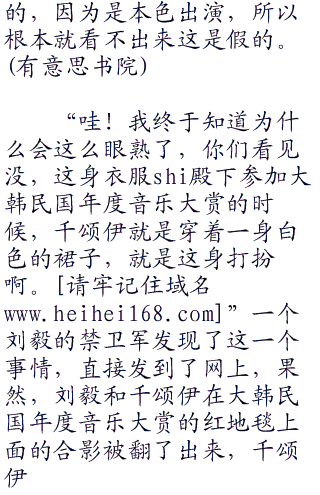 的，因为是本色出演，所以
根本就看不出来这是假的。
(有意思书院)
“哇！我终于知道为什
么会这么眼熟了，你们看见
没，这身衣服shi殿下参加大
韩民国年度音乐大赏的时
候，千颂伊就是穿着一身白
色的裙子，就是这身打扮
啊。[请牢记住域名
www.heihei168.com]”一个
刘毅的禁卫军发现了这一个
事情，直接发到了网上，果
然，刘毅和千颂伊在大韩民
国年度音乐大赏的红地毯上
面的合影被翻了出来，千颂
伊